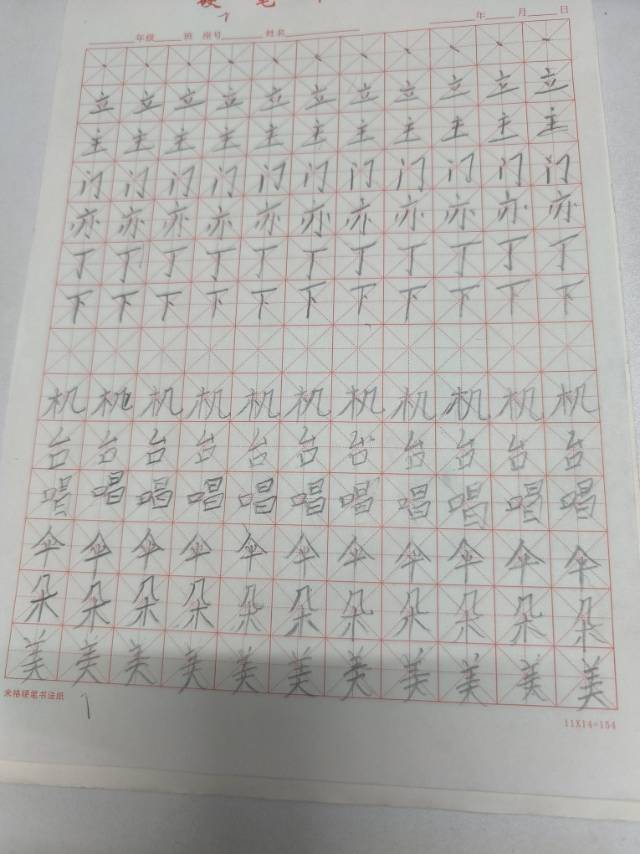 硬 笔
年级 班 座号 姓名 年 月 日
丶 丶 丶 丶 丶 丶 丶 丶 丶 丶 丶
立 立 立 立 立 立 立 立 立 立 立
主 主 主 主 主 主 主 主 主 主 主
门 门 门 门 门 门 门 门 门 门 门
亦 亦 亦 亦 亦 亦 亦 亦 亦 亦 亦
丁 丁 丁 丁 丁 丁 丁 丁 丁 丁 丁
下 下 下 下 下 下 下 下 下 下 下
机 机 机 机 机 机 机 机 机 机 机
台 台 台 台 台 台 台 台 台 台 台
唱 唱 唱 唱 唱 唱 唱 唱 唱 唱 唱
伞 伞 伞 伞 伞 伞 伞 伞 伞 伞 伞
朵 朵 朵 朵 朵 朵 朵 朵 朵 朵 朵
美 美 美 美 美 美 美 美 美 美 美
米格硬笔书法纸 11X14=154